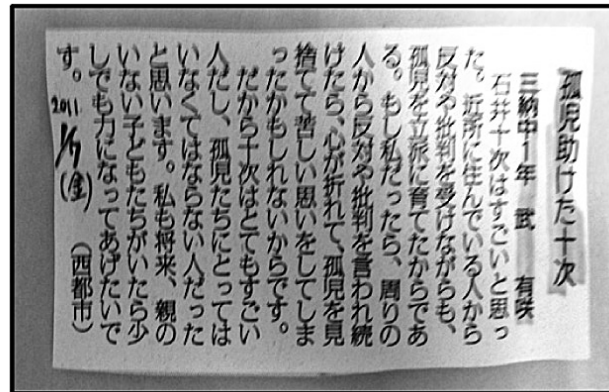 孤児助けた十次
三納中1年 武 有咲
石井十次はすごいと思っ
た。近所に住んでいる人から
反対や批判を受けながらも、
孤児を立派に育てたからであ
る。もし私だったら、周りの
人から反対や批判を言われ続
けたら、心が折れて、孤児を見
捨てて苦しい思いをしてしま
ったかもしれないからです。
だから十次はとてもすごい
人だし、孤児たちにとっては
いなくてはならない人だった
と思います。私も将来、親の
いない子どもたちがいたら少
しでも力になってあげたいで
す。
(西都市)
2011
1/7
(金)